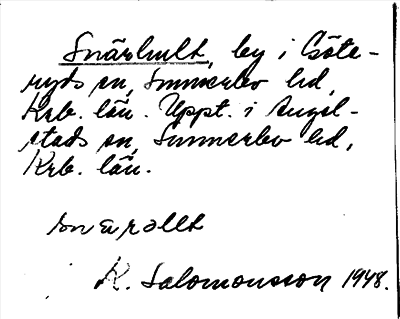 Snärhult, by i Göte-
ryds sn, Sunnerbo hd,
Krb. län. Uppt. i Angel-
stads sn, Sunnerbo hd,
Krb. län.
snärallt
K. Salomonsson 1948.